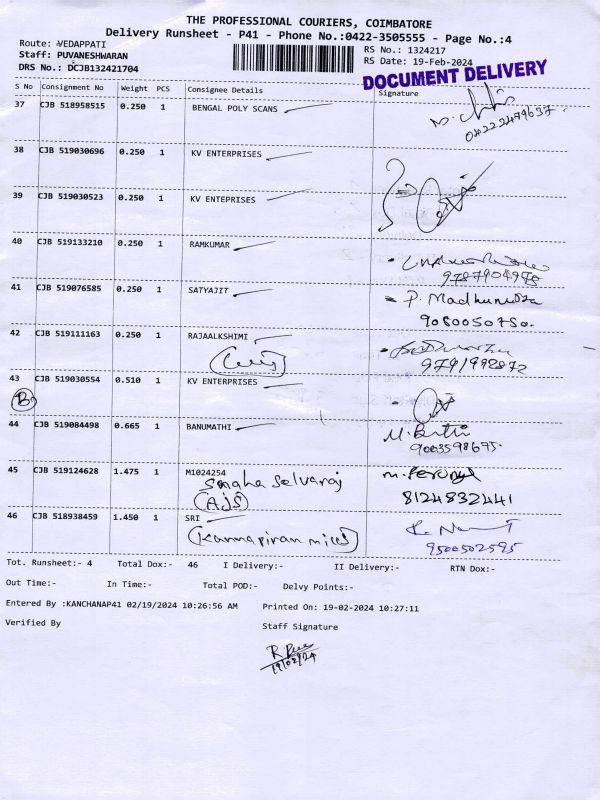 THE PROFESSIONAL COURIERS, COIMBATORE
Delivery Runsheet - P41 - Phone No.:0422-3505555 - Page No.:4
Route: VEDAPPATI
RS No.: 1324217
Staff: PUVANESHWARAN
RS Date: 19-Feb-2024
DRS No.: DCJB132421704
DOCUMENT DELIVERY
S No Consignment No Weight PCS Consignee Details Signature
37 CJB 518958515 0.250 1 BENGAL POLY SCANS
04222499637
38 CJB 519030696 0.250 1 KV ENTERPRISES
39 CJB 519030523 0.250 1 KV ENTEPRISES
40 CJB 519133210 0.250 1 RAMKUMAR
9787904975
41 CJB 519076585 0.250 1 SATYAJIT P. Madhumitza
9080050750.
42 CJB 519111163 0.250 1 RAJAALKSHIMI
9791998872
43 CJB 519030554 0.510 1 KV ENTERPRISES
B
44 CJB 519084498 0.665 1 BANUMATHI
9003598695.
45 CJB 519124628 1.475 1 M1024254
Selvaraj
(AJS) 8124832441
46 CJB 518938459 1.450 1 SRI
(Kannapiran mills) 9500502595
Tot. Runsheet:- 4 Total Dox:- 46 I Delivery:- II Delivery:- RTN Dox:-
Out Time:- In Time:- Total POD:- Delvy Points:-
Entered By :KANCHANAP41 02/19/2024 10:26:56 AM Printed On: 19-02-2024 10:27:11
Verified By Staff Signature
19/02/24